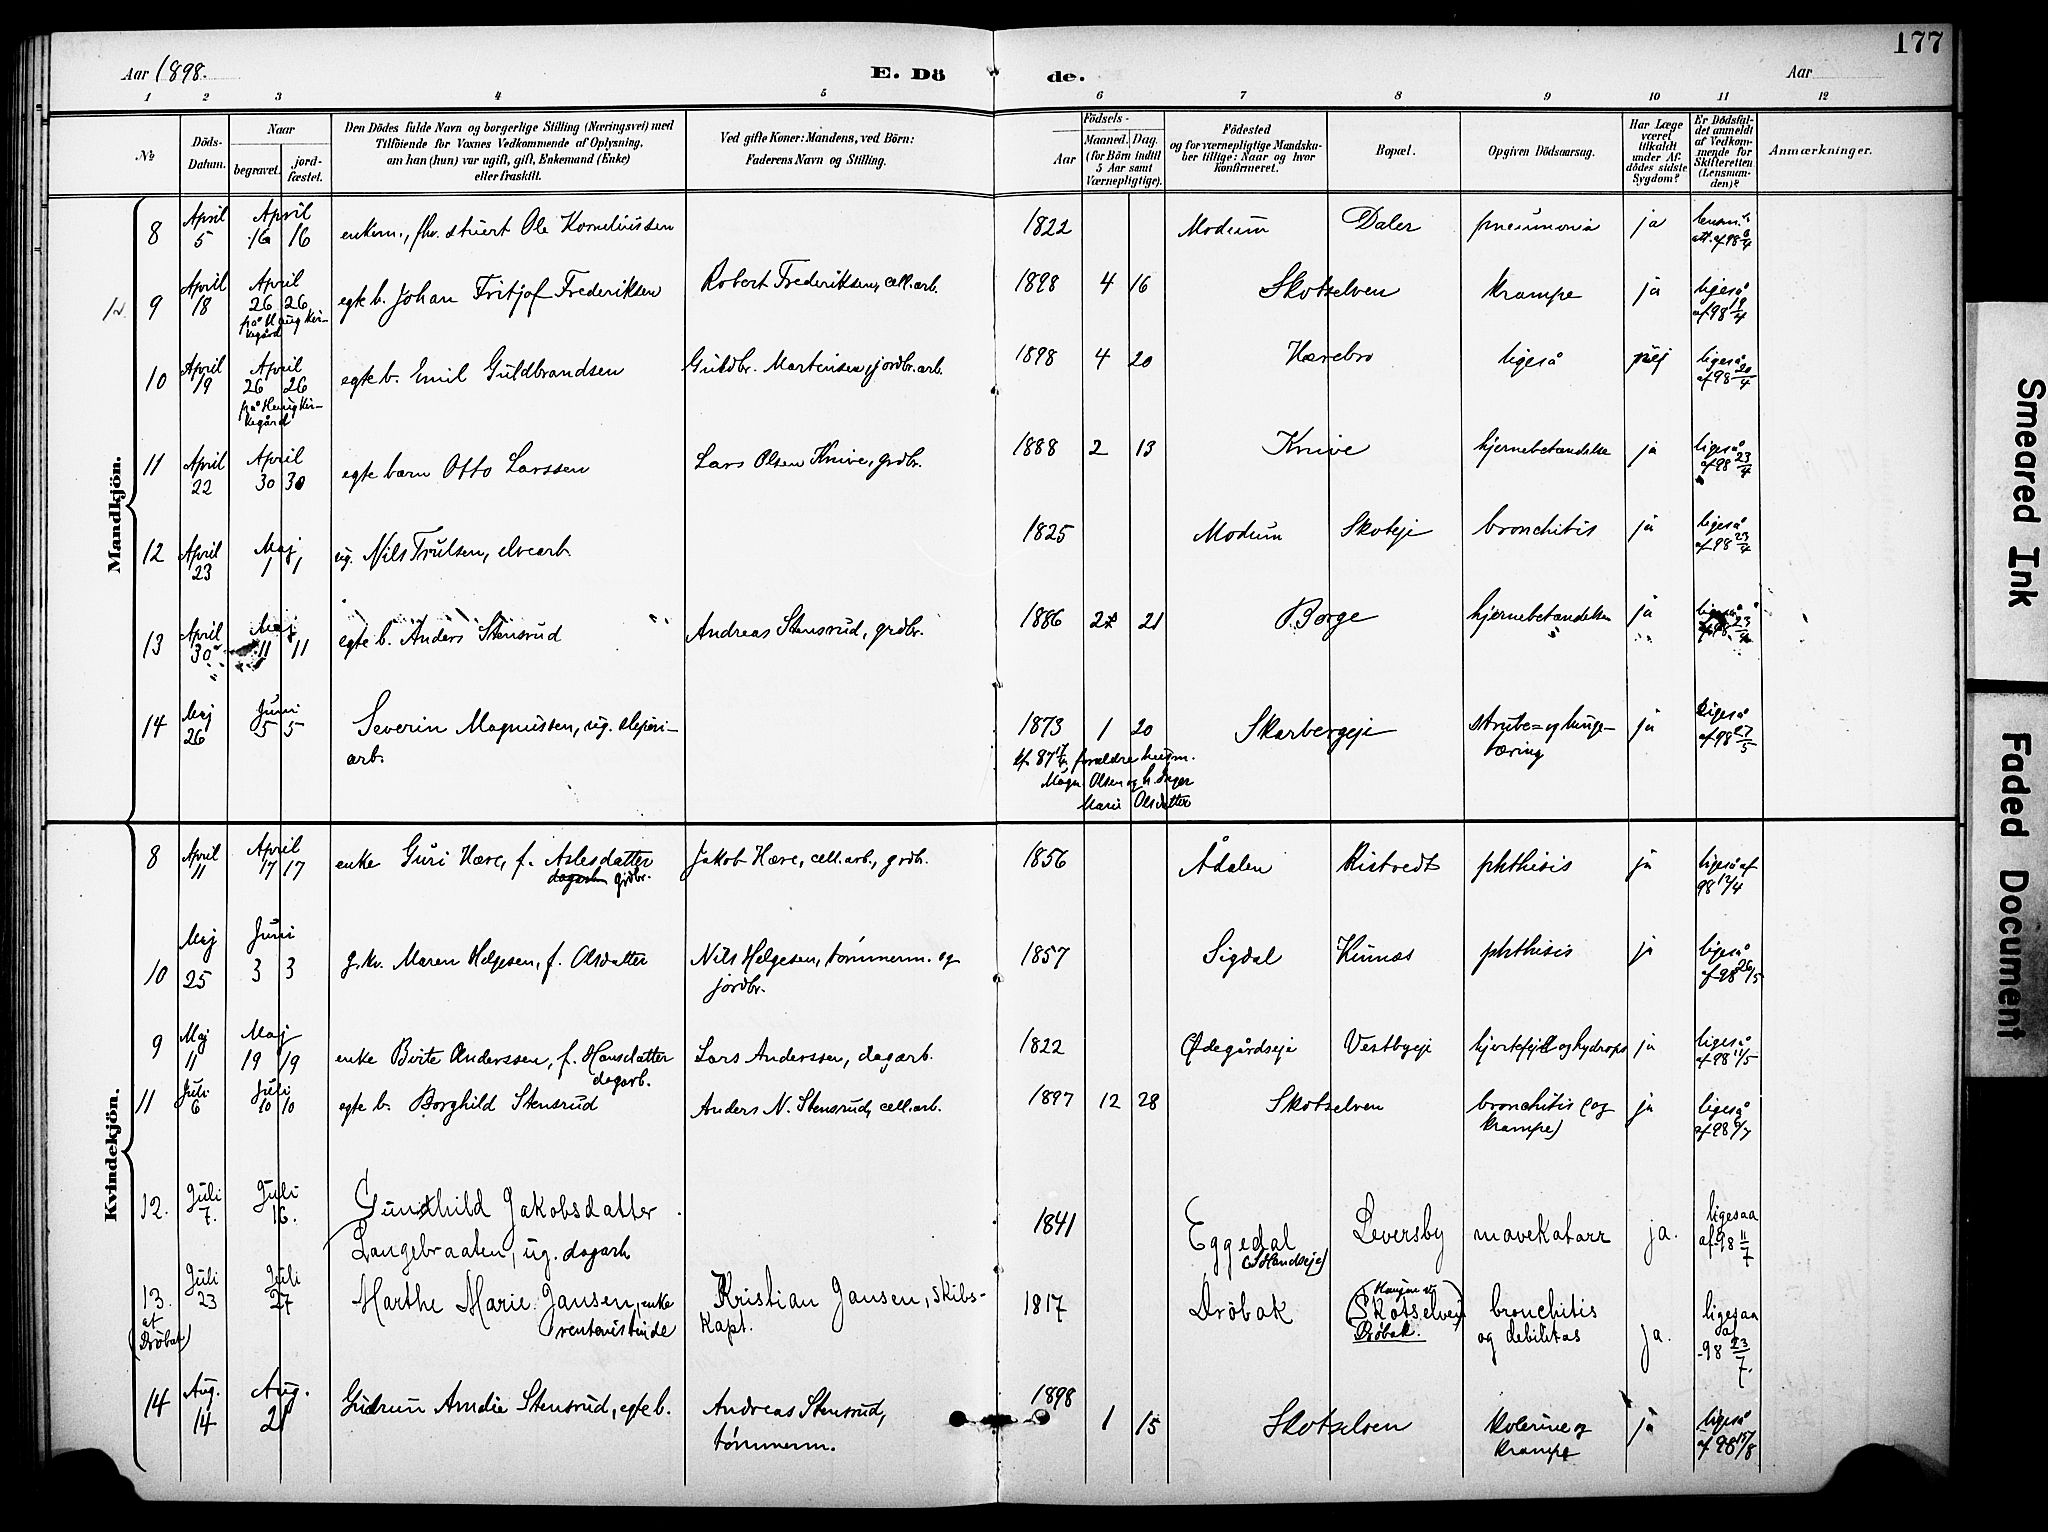 177
Aar 1898.
E. Dö de.
Aar
1 2 3 4 5 6 7 8 9 10 11 12
№
Döds-Datum.
Naar
begravet.
jord-fæstet.
Den Dödes fulde Navn og borgerlige Stilling (Næringsvei) med
Tilföiende for Voxnes Vedkommende af Oplysning,
om han (hun) var ugift, gift, Enkemand (Enke)
eller fraskilt.
Ved gifte Koner: Mandens, ved Börn:
Faderens Navn og Stilling.
Födsels-
Aar
Maaned. Dag.
(for Börn indtil
5 Aar samt
Værnepligtige).
Födested
og for værnepligtige Mandska-
ber tillige: Naar og hvor
konfirmeret.
Bopæl.
Opgiven Dödsaarsag.
Har Læge
været
tilkaldt
under Af-
dödes sidste
Sygdom?
Er Dödsfal-
det anmeldt
af Vedkom-
mende for
Skifteretten
(Lensman-
den)?
Anmærkninger.
Mandkjön.
8 April 5 April 16 16 enkem., fhv. stuert Ole Korneliussen 1822 Modum Daler pneumonia ja lensm. att. af 98 6/4
9 April 18 April 26 26 på Haug Kirkegård egte b. Johan Fritjof Frederiksen Robert Frederiksen, cell.arb. 1898 4 16 Skotselven krampe ja ligeså af 98 19/4
10 April 19 April 26 26 på Haug Kirkegård egte b. Emil Guldbrandsen Guldbr. Martinsen, jordbr.arb. 1898 4 20 Hærebro ligeså nej ligeså af 98 20/4
11 April 22 April 30 30 egte barn Otto Larssen Lars Olsen Knive, grdbr. 1888 2 13 Knive hjernebetændelse ja ligeså af 98 23/4
12 April 23 Maj 1 1 ug. Nils Trulsen, elvearb. 1825 Modum Skoteje bronchitis ja ligeså af 98 23/4
13 April 30 Maj 11 11 egte b. Anders Stensrud Andreas Stensrud, grdbr. 1886 2 21 Borge hjernebetændelse ja ligeså
14 Maj 26 Juni 5 5 Severin Magnussen, ug. sliperi-
arb. 1873 1 20 Skarbergeje strube- og lunge-
tæring ja ligeså af 98 27/5
forældre husm.
Magn. Olsen og h. Inger
Marie Olsdatter
Kvindekjön.
8 April 11 April 17 17 enke Guri Hære, f. Aslesdatter Jakob Hære, cell.arb., grdbr. 1856 Ådalen Ristvedt phthisis ja ligeså af 98 12/4
dagarb. grdbr.
10 Maj 25 Juni 3 3 g. kv. Maren Helgesen, f. Olsdatter Nils Helgesen, tømmerm. og
jordbr. 1857 Sigdal Kinnas phthisis ja ligeså af 98 26/5
9 Maj 11 Maj 19 19 enke Birte Anderssen, f. Hansdatter Lars Anderssen, dagarb. 1822 Ødegårdseje Vestbyeje hjertefejl og hydrops ja ligeså af 98 11/5
dagarb.
11 Juli 6 Juli 10 10 egte b. Borghild Stensrud Anders N. Stensrud, cell.arb. 1897 12 28 Skotselven bronchitis (og
krampe) ja ligeså af 98 6/7
12. Juli 7. Juli 16. Gunhild Jakobsdatter
Langebraaten, ug. dagarb. 1841 Eggedal Leversby mavekatarr ja. ligesaa af 98 11/7
13. at (Dröbak) Juli 23 Juli 27 Marthe Marie Jansen, enke
rentenistinde Kristian Jansen, Skibs-
kapt. 1817 Dröbak (Skotselven) Dröbak. bronchitis
og debilitas ja. ligesaa af 98 23/7.
14 Aug. 14 Aug. 21 Gudrun Amalie Stensrud, egte b. Andreas Stensrud,
tømmerm. 1898 1 15 Skotselven kolerine og
krampe ja ligeså af 98 15/8
Smeared Ink
Faded Document